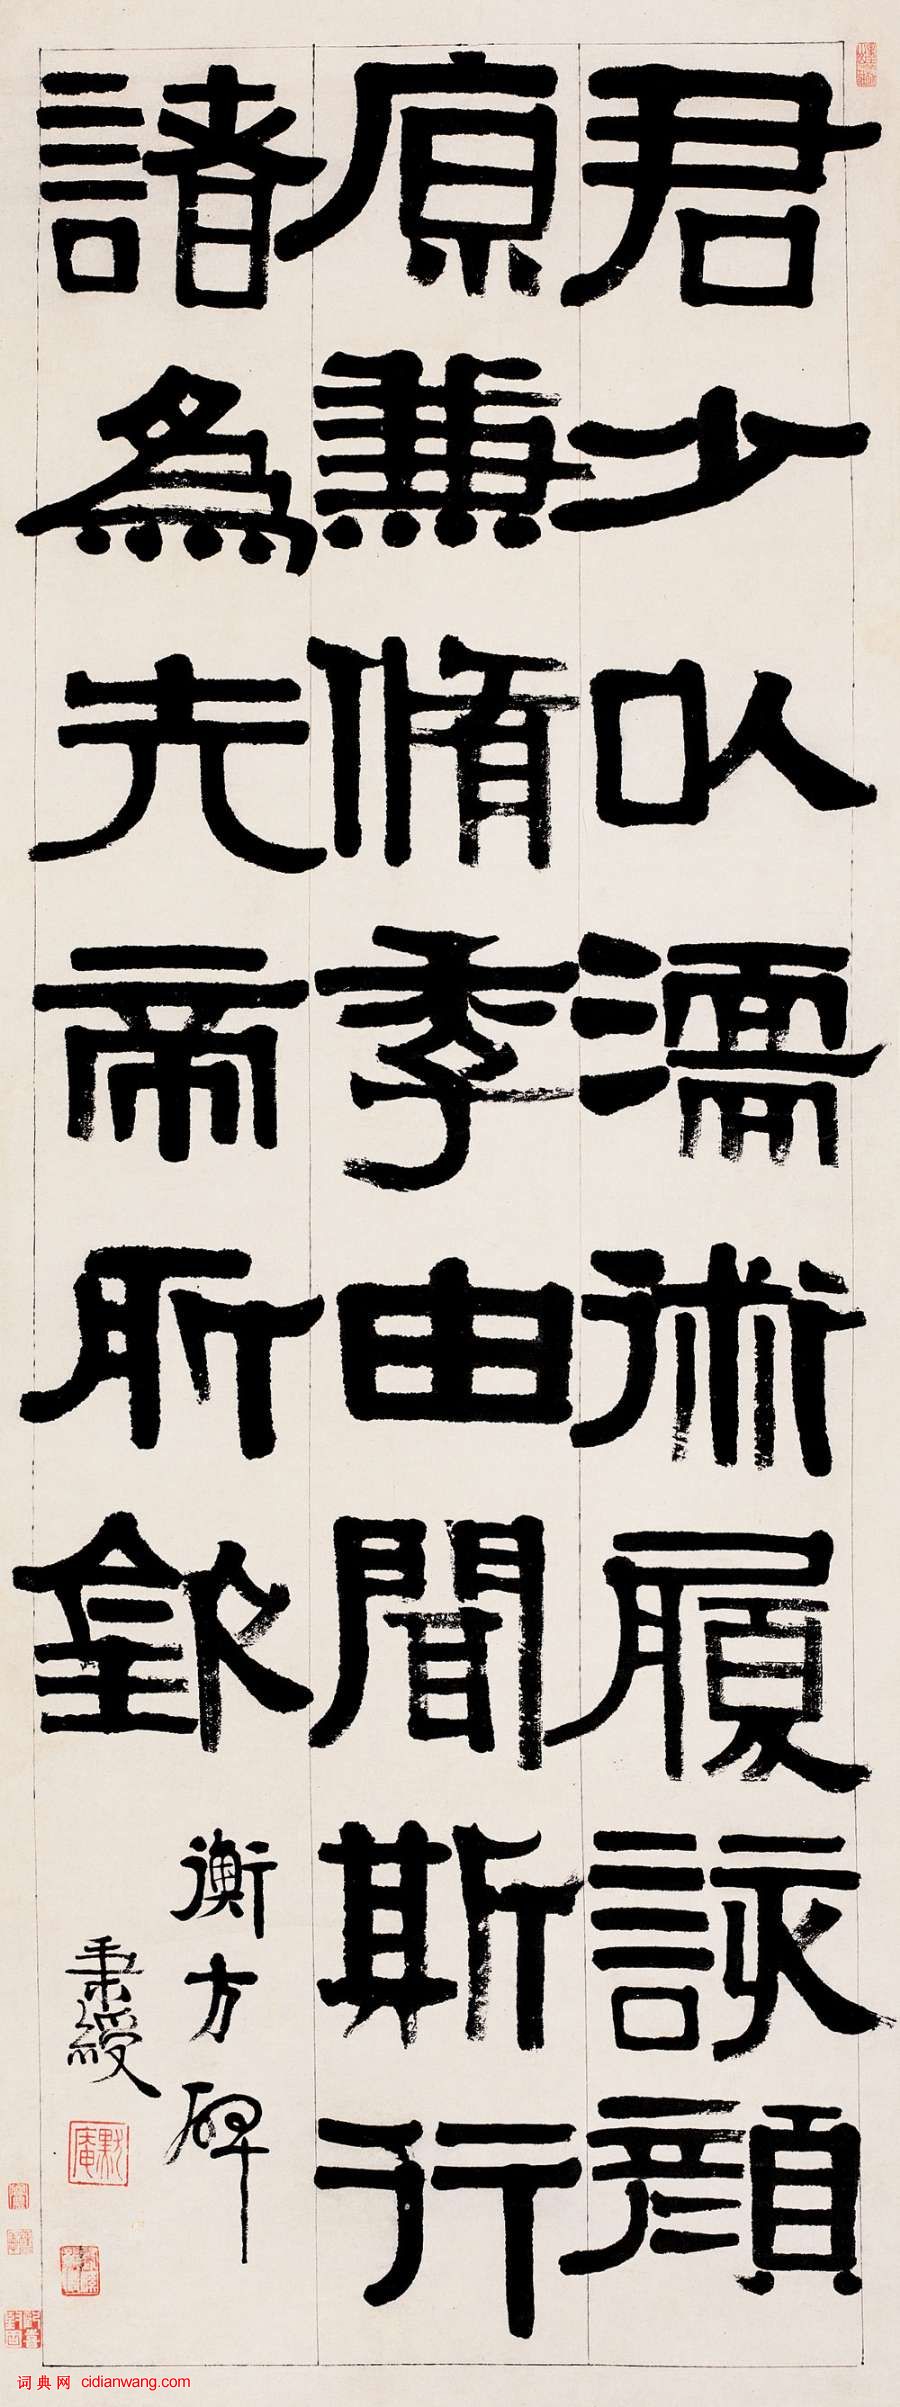 君少㕥濡術履詠顔
原兼脩季由聞斯行
諸爲先帝所欽
衡方碑
秉綬
默庵
词典网 cidianwang.com